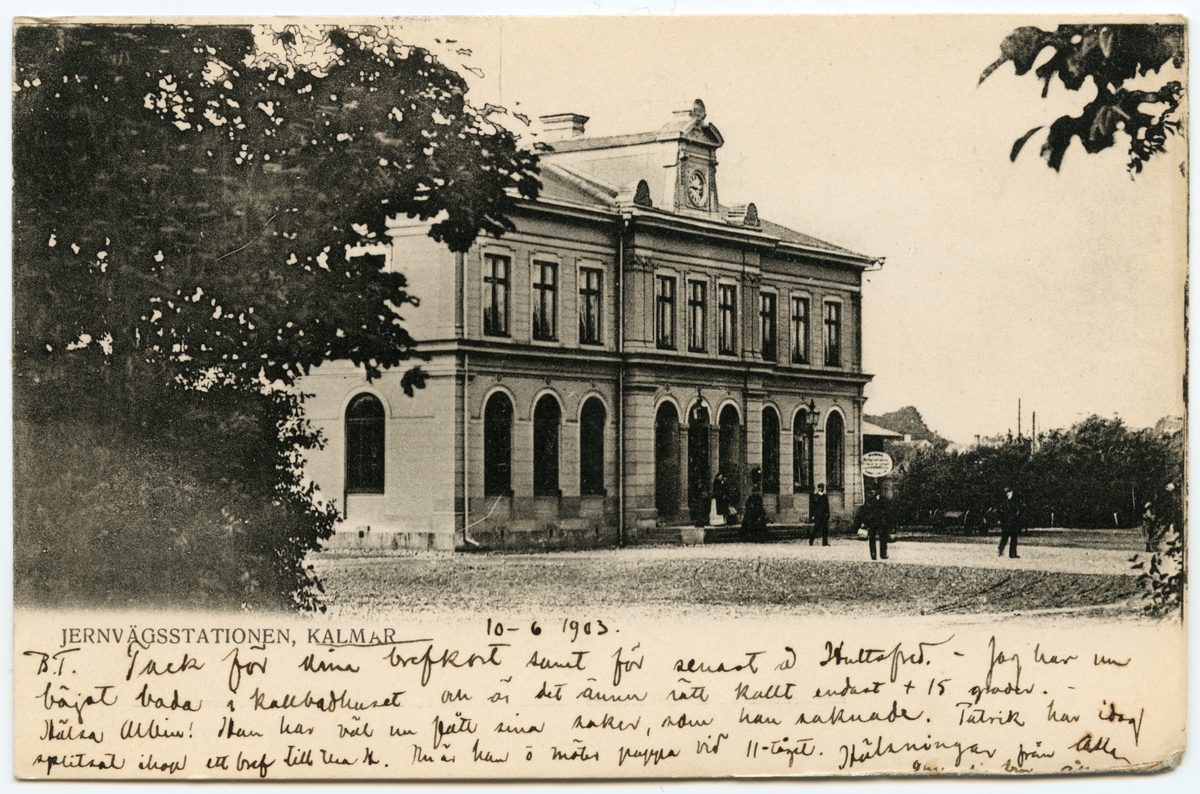 JERNVÄGSSTATIONEN, KALMAR
10-6 1903.
B.T. Tack för dina brefkort samt för senast å Hultsfred. - Jag har nu
börjat bada i kallbadhuset och är det ännu rätt kallt endast + 15 grader. -
Hälsa Albin! Han har väl nu fått sina saker, som han saknade. Patrik har idag
splitsat ihop ett bref till K. Nu är han ö möter pappa vid 11-tåget. Hälsningar från